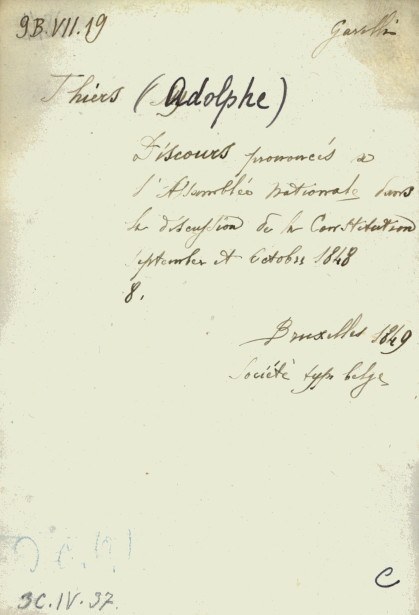 9B.VII.19
Thiers (Adolphe)
Discours prononcés a
l'Assemblée nationale dans
la discussion de la Constitution
septembre et Octobre 1848
8.
Bruxelles 1849
Société typ belge
C
3C.IV.37.